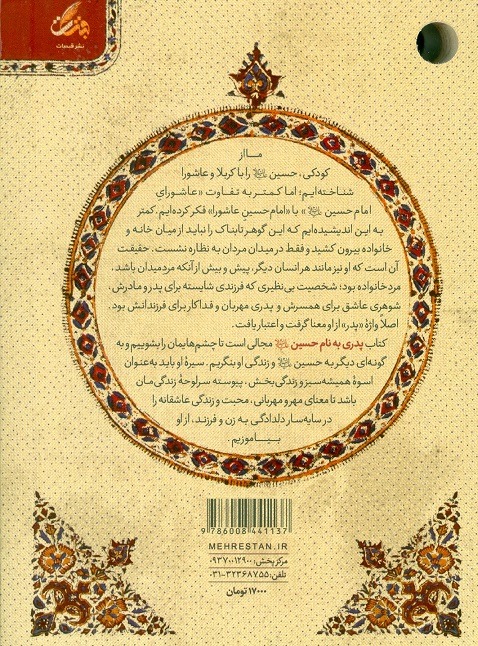 نشر قبسات
ما از
کودکی، حسین را با کربلا و عاشورا
شناخته‌ایم؛ اما کمتر به تفاوت «عاشورای
امام حسین » با «امام حسین عاشورا» فکر کرده‌ایم. کمتر
به این اندیشیده‌ایم که این گوهر تابناک را نباید از میان خانه و
خانواده بیرون کشید و فقط در میدان مردان به نظاره نشست. حقیقت
آن است که او نیز مانند هر انسان دیگر، پیش و بیش از آنکه مرد میدان باشد،
مرد خانواده بود؛ شخصیت بی‌نظیری که فرزندی شایسته برای پدر و مادرش،
شوهری عاشق برای همسرش و پدری مهربان و فداکار برای فرزندانش بود.
اصلاً واژهٔ «پدر» از او معنا گرفت و اعتبار یافت.
کتاب پدری به نام حسین مجالی است تا چشم‌هایمان را بشوییم و به
گونه‌ای دیگر به حسین و زندگی او بنگریم. سیرهٔ او باید به‌عنوان
اسوهٔ همیشه سبز و زندگی‌بخش، پیوسته سرلوحهٔ زندگی‌مان
باشد تا معنای مهر و مهربانی، محبت و زندگی عاشقانه را
در سایه‌سار دلدادگی به زن و فرزند، از او
بیاموزیم.
9 786008 441137
MEHRESTAN.IR
مرکز پخش: ۰۹۳۷۰۰۱۲۹۰۰
تلفن: ۳۲۳۶۸۷۵۵-۰۳۱
۱۷۰۰۰ تومان